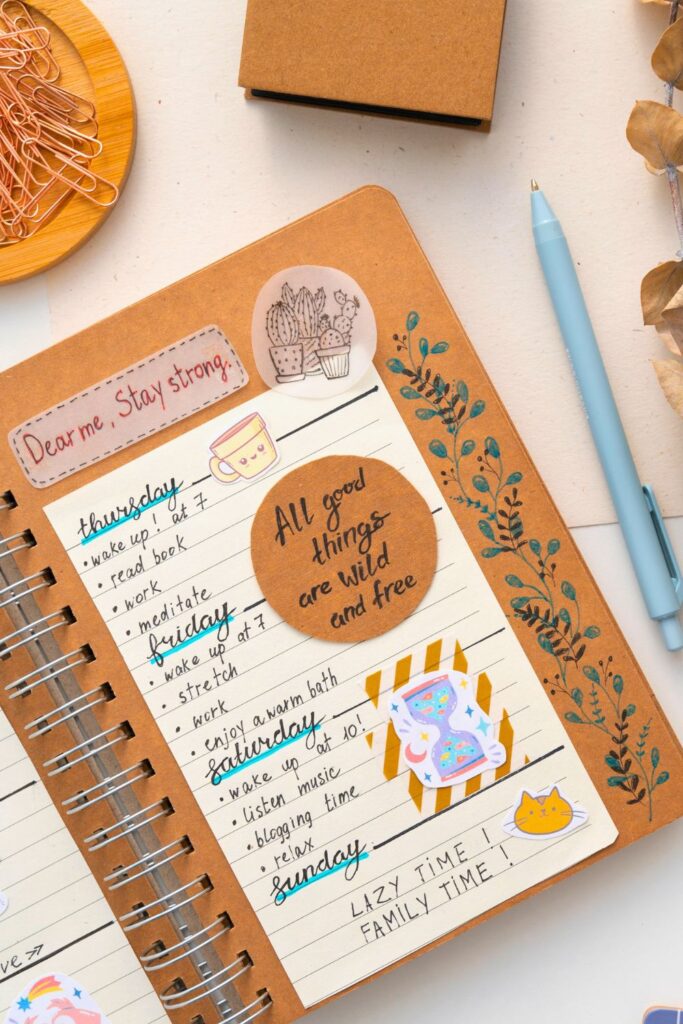 Dear me, Stay strong.
thursday
• wake up! at 7
• read book
• work
• meditate
All good
things
are wild
and free
friday
• wake up at 7
• stretch
• work
• enjoy a warm bath
saturday
• wake up at 10!
• listen music
• blogging time
• relax
sunday
LAZY TIME !
FAMILY TIME !